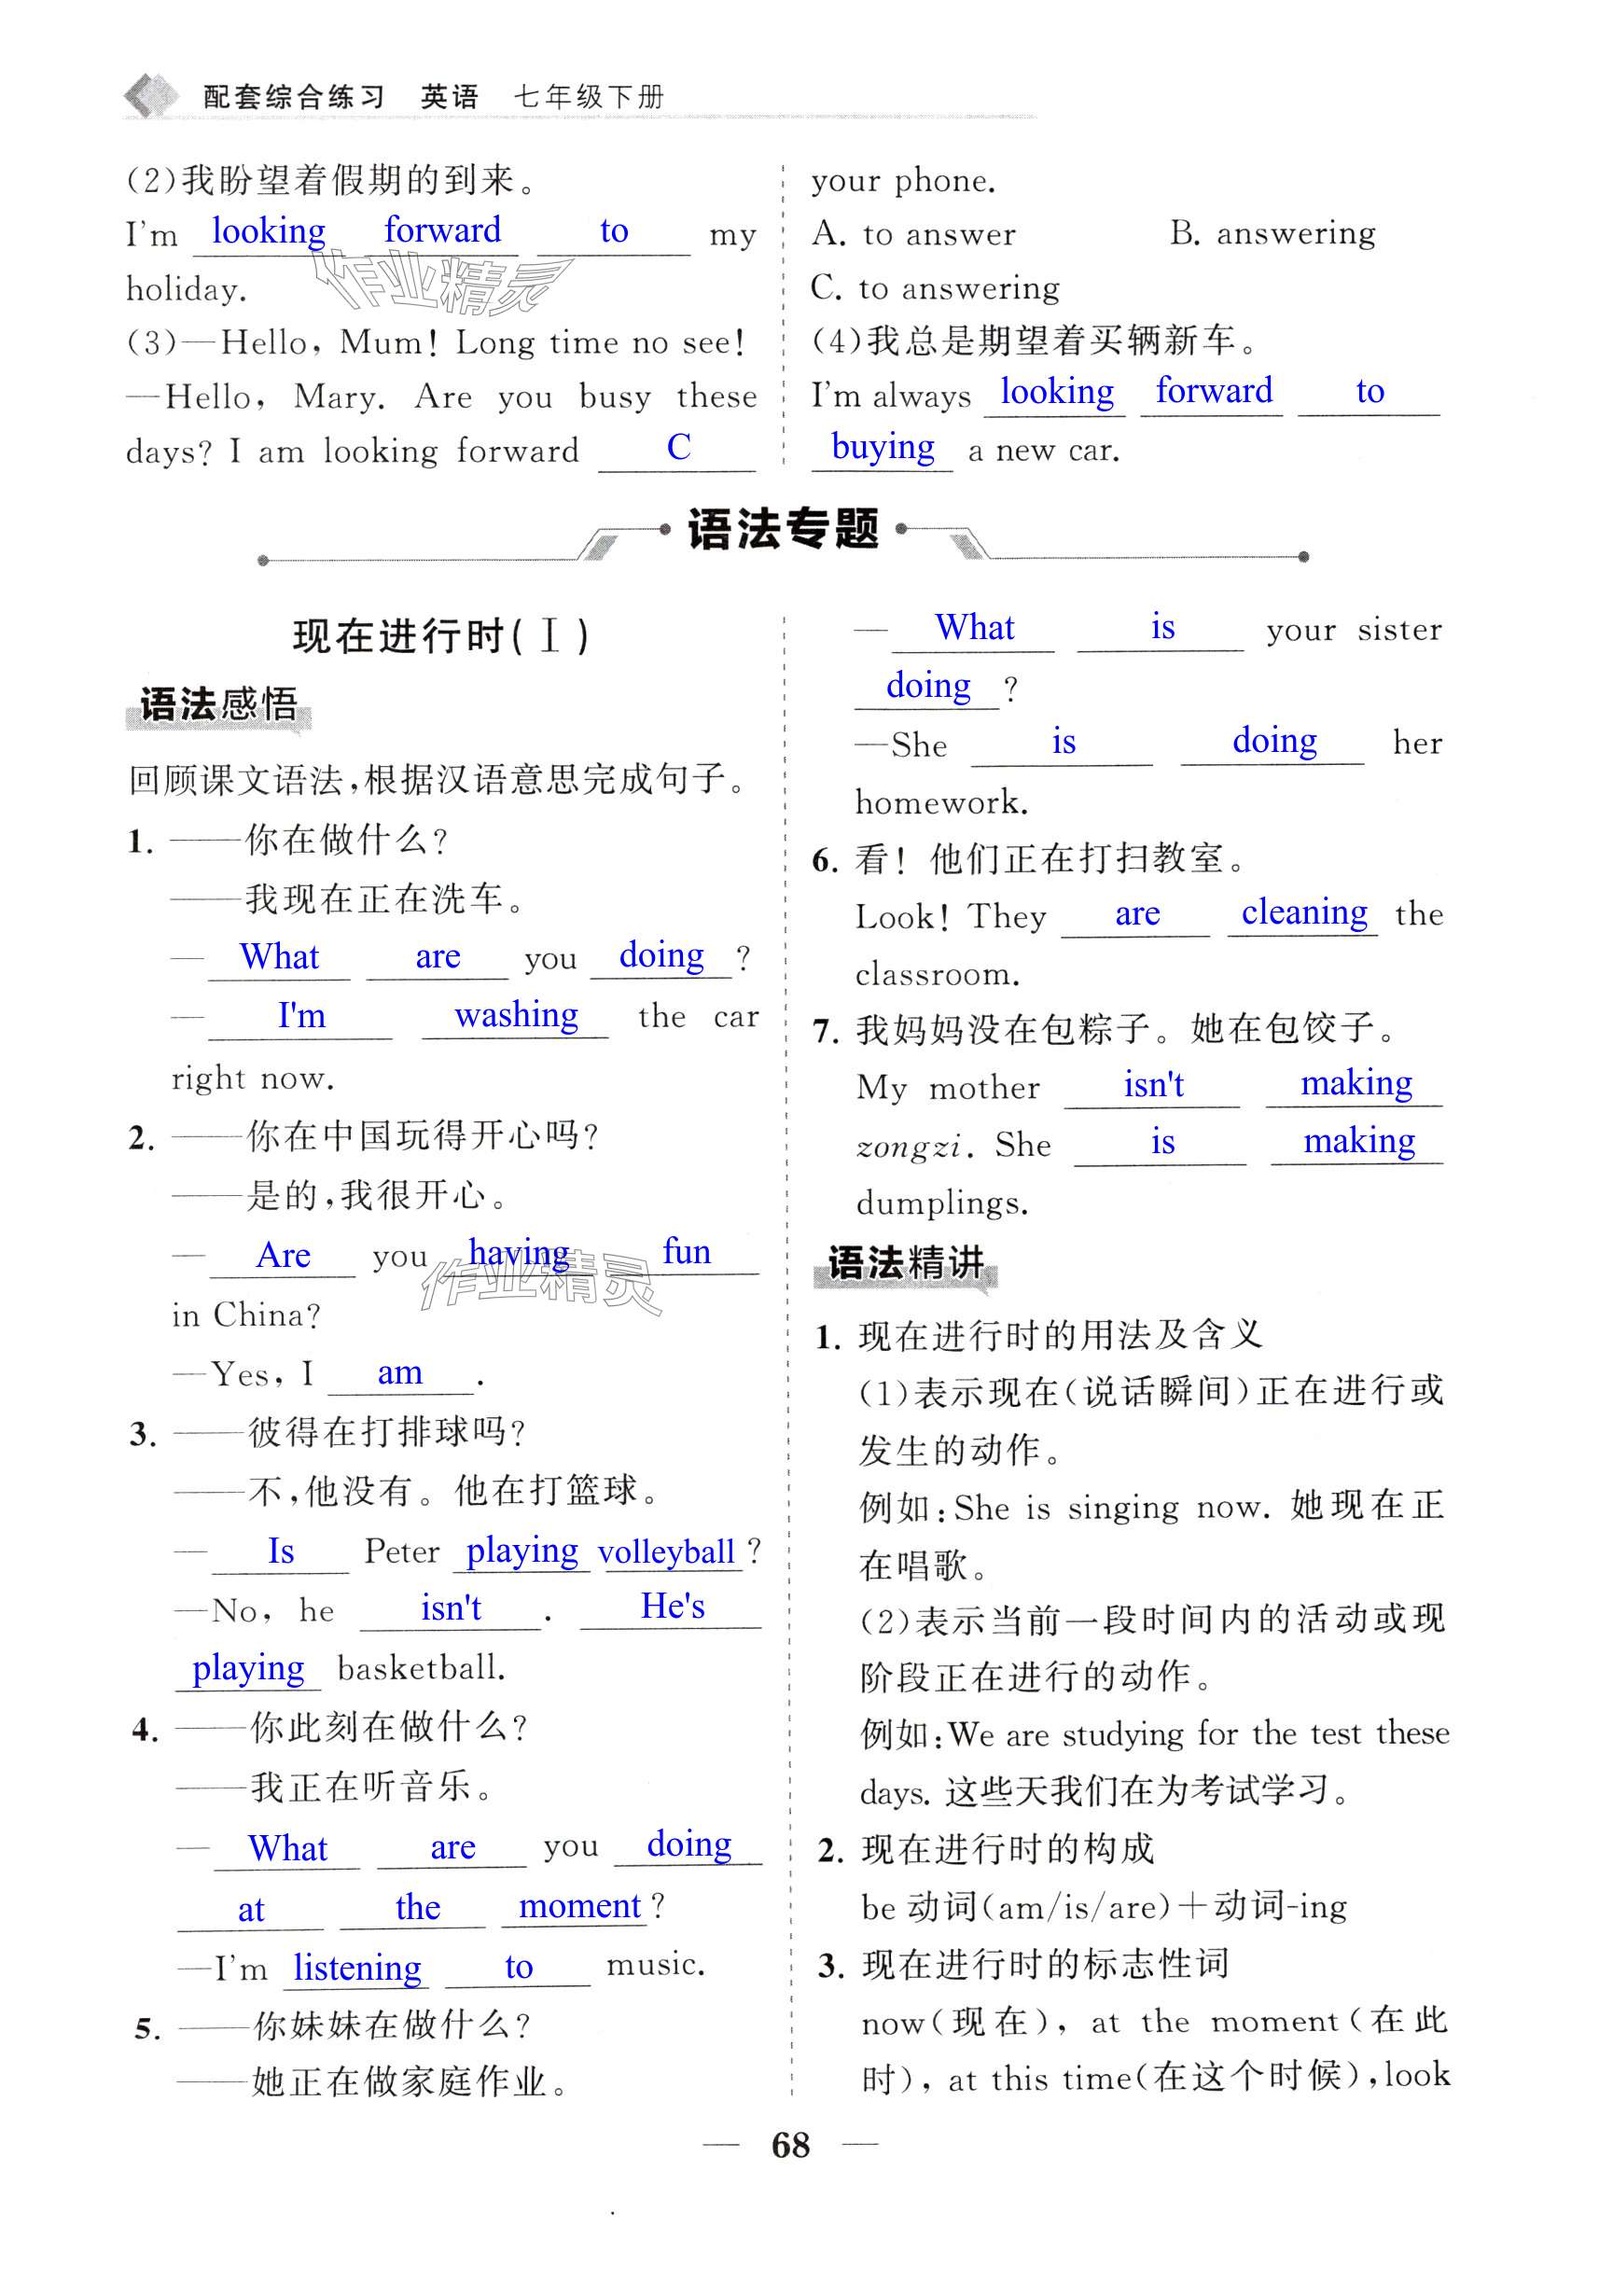 配套综合练习 英语 七年级下册
(2)我盼望着假期的到来。
I'm looking forward to my
holiday.
(3)—Hello, Mum! Long time no see!
—Hello, Mary. Are you busy these
days? I am looking forward C
your phone.
A. to answer B. answering
C. to answering
(4)我总是期望着买辆新车。
I'm always looking forward to
buying a new car.
语法专题
现在进行时(Ⅰ)
语法感悟
回顾课文语法,根据汉语意思完成句子。
1. ——你在做什么?
——我现在正在洗车。
— What are you doing ?
— I'm washing the car
right now.
2. ——你在中国玩得开心吗?
——是的,我很开心。
— Are you having fun
in China?
—Yes, I am .
3. ——彼得在打排球吗?
——不,他没有。他在打篮球。
— Is Peter playing volleyball ?
—No, he isn't . He's
playing basketball.
4. ——你此刻在做什么?
——我正在听音乐。
— What are you doing
at the moment ?
—I'm listening to music.
5. ——你妹妹在做什么?
——她正在做家庭作业。
— What is your sister
doing ?
—She is doing her
homework.
6. 看! 他们正在打扫教室。
Look! They are cleaning the
classroom.
7. 我妈妈没在包粽子。她在包饺子。
My mother isn't making
zongzi. She is making
dumplings.
语法精讲
1. 现在进行时的用法及含义
(1)表示现在(说话瞬间)正在进行或
发生的动作。
例如:She is singing now. 她现在正
在唱歌。
(2)表示当前一段时间内的活动或现
阶段正在进行的动作。
例如:We are studying for the test these
days. 这些天我们在为考试学习。
2. 现在进行时的构成
be 动词(am/is/are)+动词-ing
3. 现在进行时的标志性词
now(现在), at the moment(在此
时), at this time(在这个时候),look
— 68 —
作业精灵
作业精灵